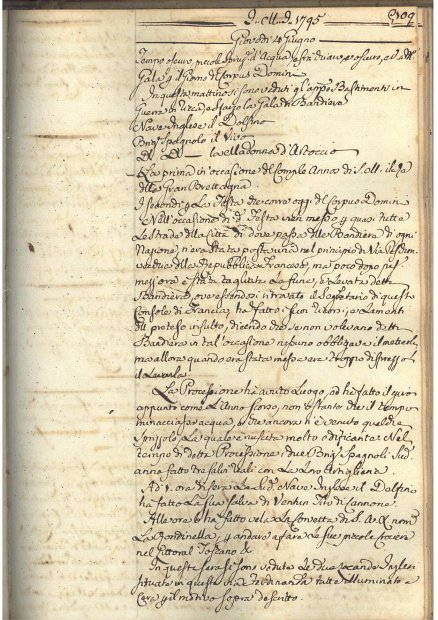 1795
309
Giovedi 4 Giugno
Tempo oscuro, piccole d'Acqua
Gala p il Giorno di Corpus Domini
In questa mattina si sono veduti gl'appo Bastimenti in
Guerra di Gala di Bandiera
Nave Inglese il Dolfino
Brig. Spagnolo il Vivo
la Madonna d'
La prima in occasione del Comple Anno di S. M. il Re
della Gran Brettagna
I secondi p la Festa che corre oggi del Corpus Domini
Nell'occasione di d. Festa vien messo p quasi tutte
le strade della Città di dove passa delle Bandiere di ogni
Nazione, n'era stata posta una nel principio di Via
della Repubblica Francese, ma poco dopo nel
messa era stata tagliata la fune, e levata detta
Bandiera, ove essendosi ritrovato il Segretario di questo
Console di Francia, ha fatto e lamenti
del preteso insulto, dicendo che se non volevano detta
Bandiera in tal'occasione nessuno obbligava il metterla
ma allora quando era stata messa era troppo disprezzo
il levarla
La Processione ha avuto luogo, ed ha fatto il giro
appunto come l'Anno scorso, non ostante che il tempo
minacciasse acqua, e che ancora n'è venuto qualche
spruzzolo la quale è riuscita molto edificante: Nel
tempo di detta Processione i due Brig. Spagnoli sud.
anno fatto tre salve Reali con la loro Artiglieria
Ad 1 ora di sera la sud. Nave Inglese il Dolfino
ha fatto la sua salva di Ventun Tiri di Cannone
Alle ore 6 ha fatto vela la Corvetta di S. A. R. nom.
La Rondinella, p andare a fare le sue piccole crociere
nel Littoral Toscano
In questa sera si sono vedute le due Locande Inglesi
situate in questa Via Ferdinanda tutte illuminate a
Cera p il motivo sopra descritto.